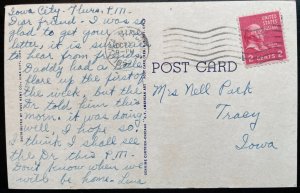 Iowa City - Thurs. P.M.
Dear friend - I was so
glad to get your
letter, it is
to hear from
Daddy had a little
flare up the first of
the week, but the
Dr told him this
morn. it was doing
well, I hope so!
I think I shall see
the Dr this P.M.
Don't know when we
will be home. Lena
POST CARD
Mrs Nell Park
Tracy
Iowa
UNITED STATES POSTAGE
2 CENTS 2